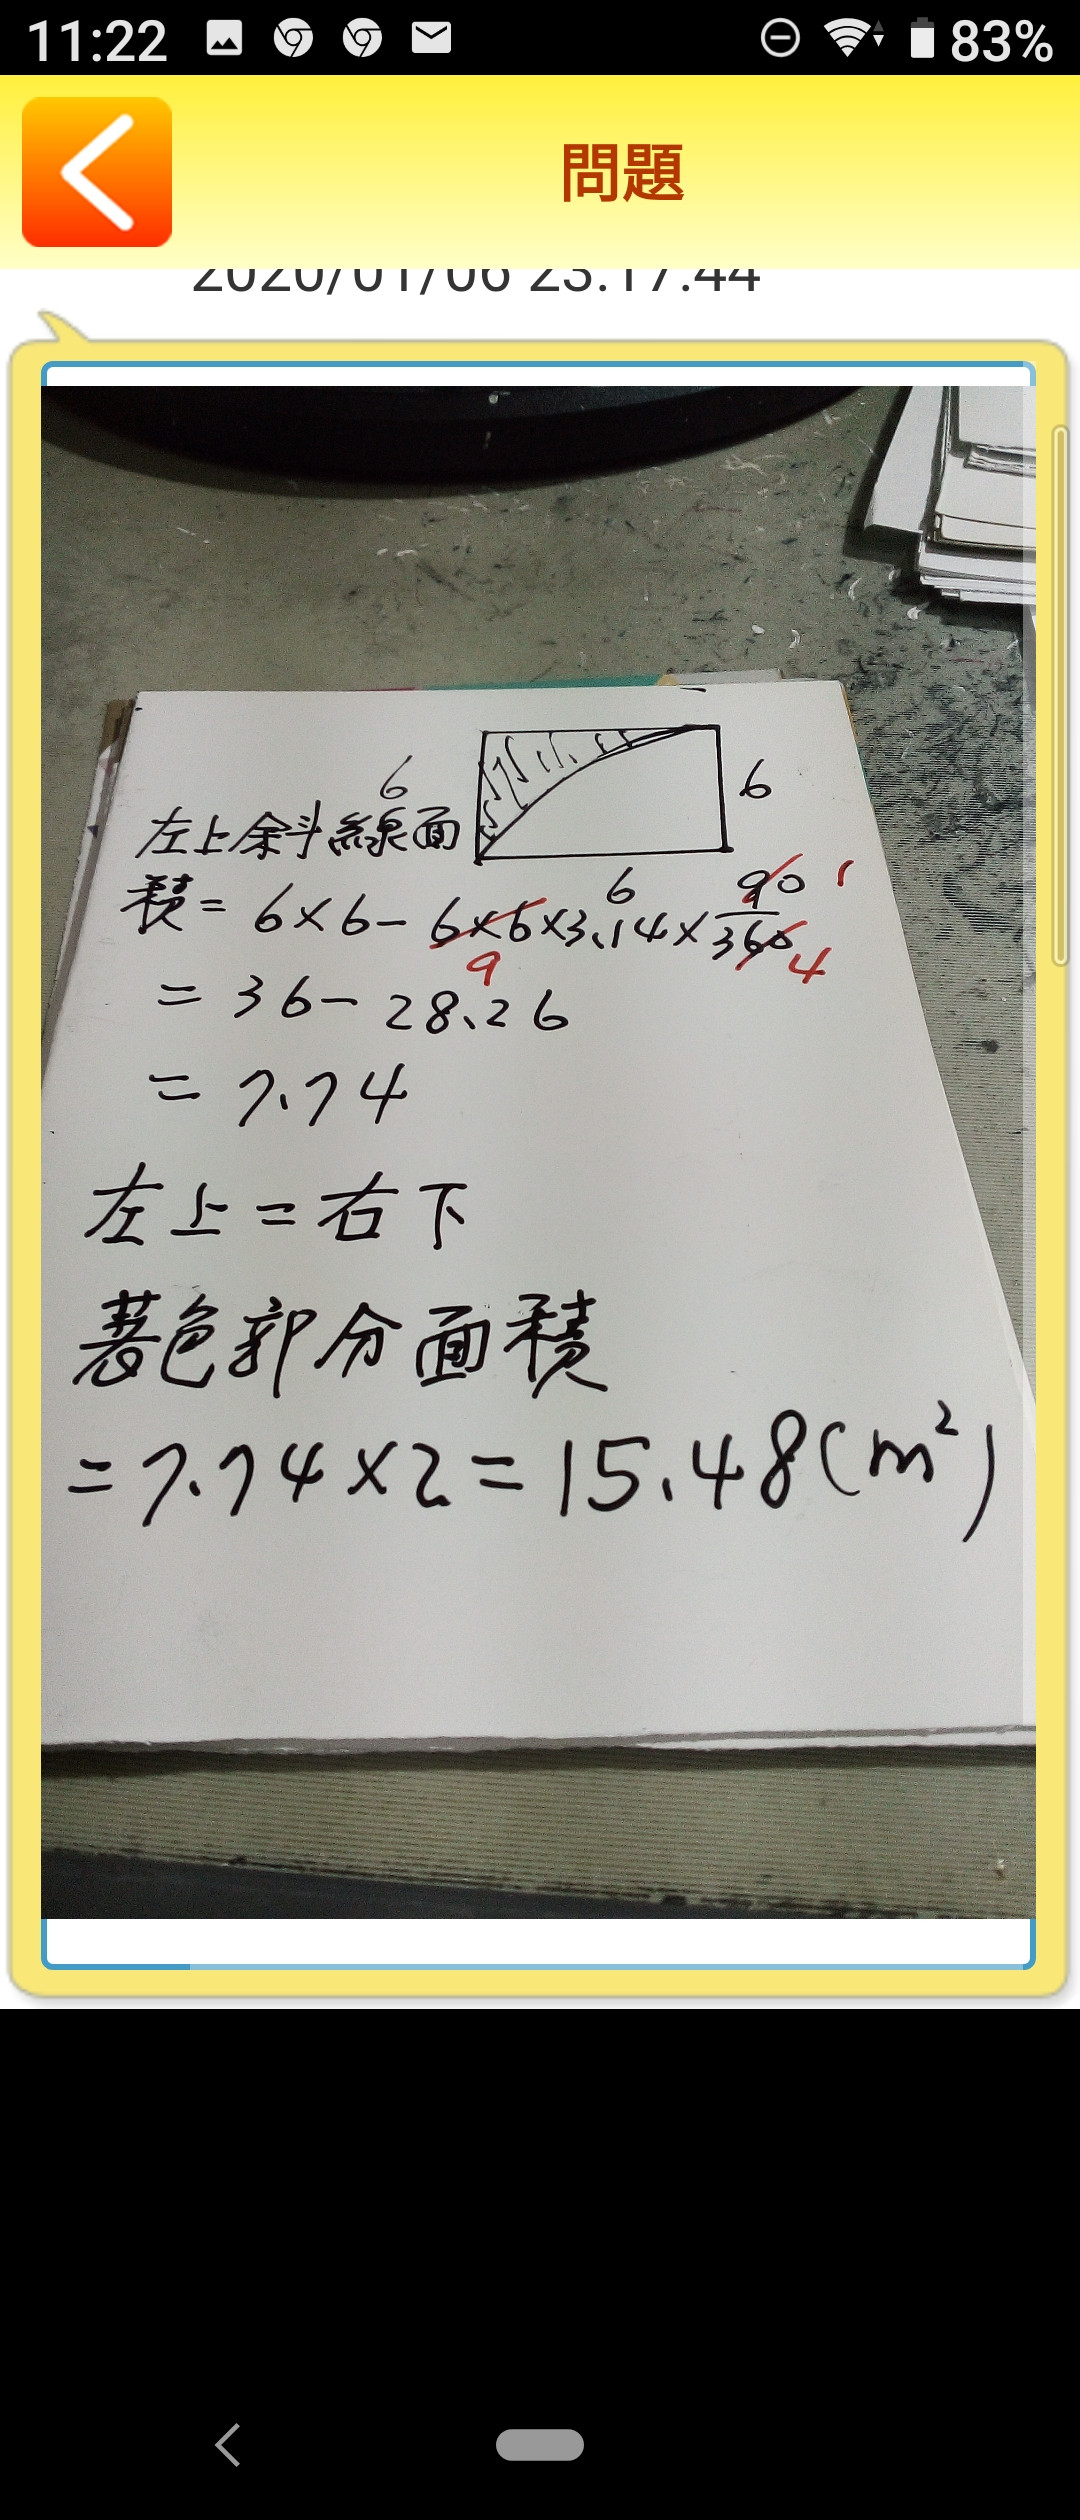 11:22
83%
問題
2020/01/06 23:17:44
6
6
左上斜線面
6
積 = 6×6 - 6×6×3.14× 90/360
1
9
4
= 36 - 28.26
= 7.74
左上 = 右下
著色部分面積
= 7.74×2 = 15.48(m²)